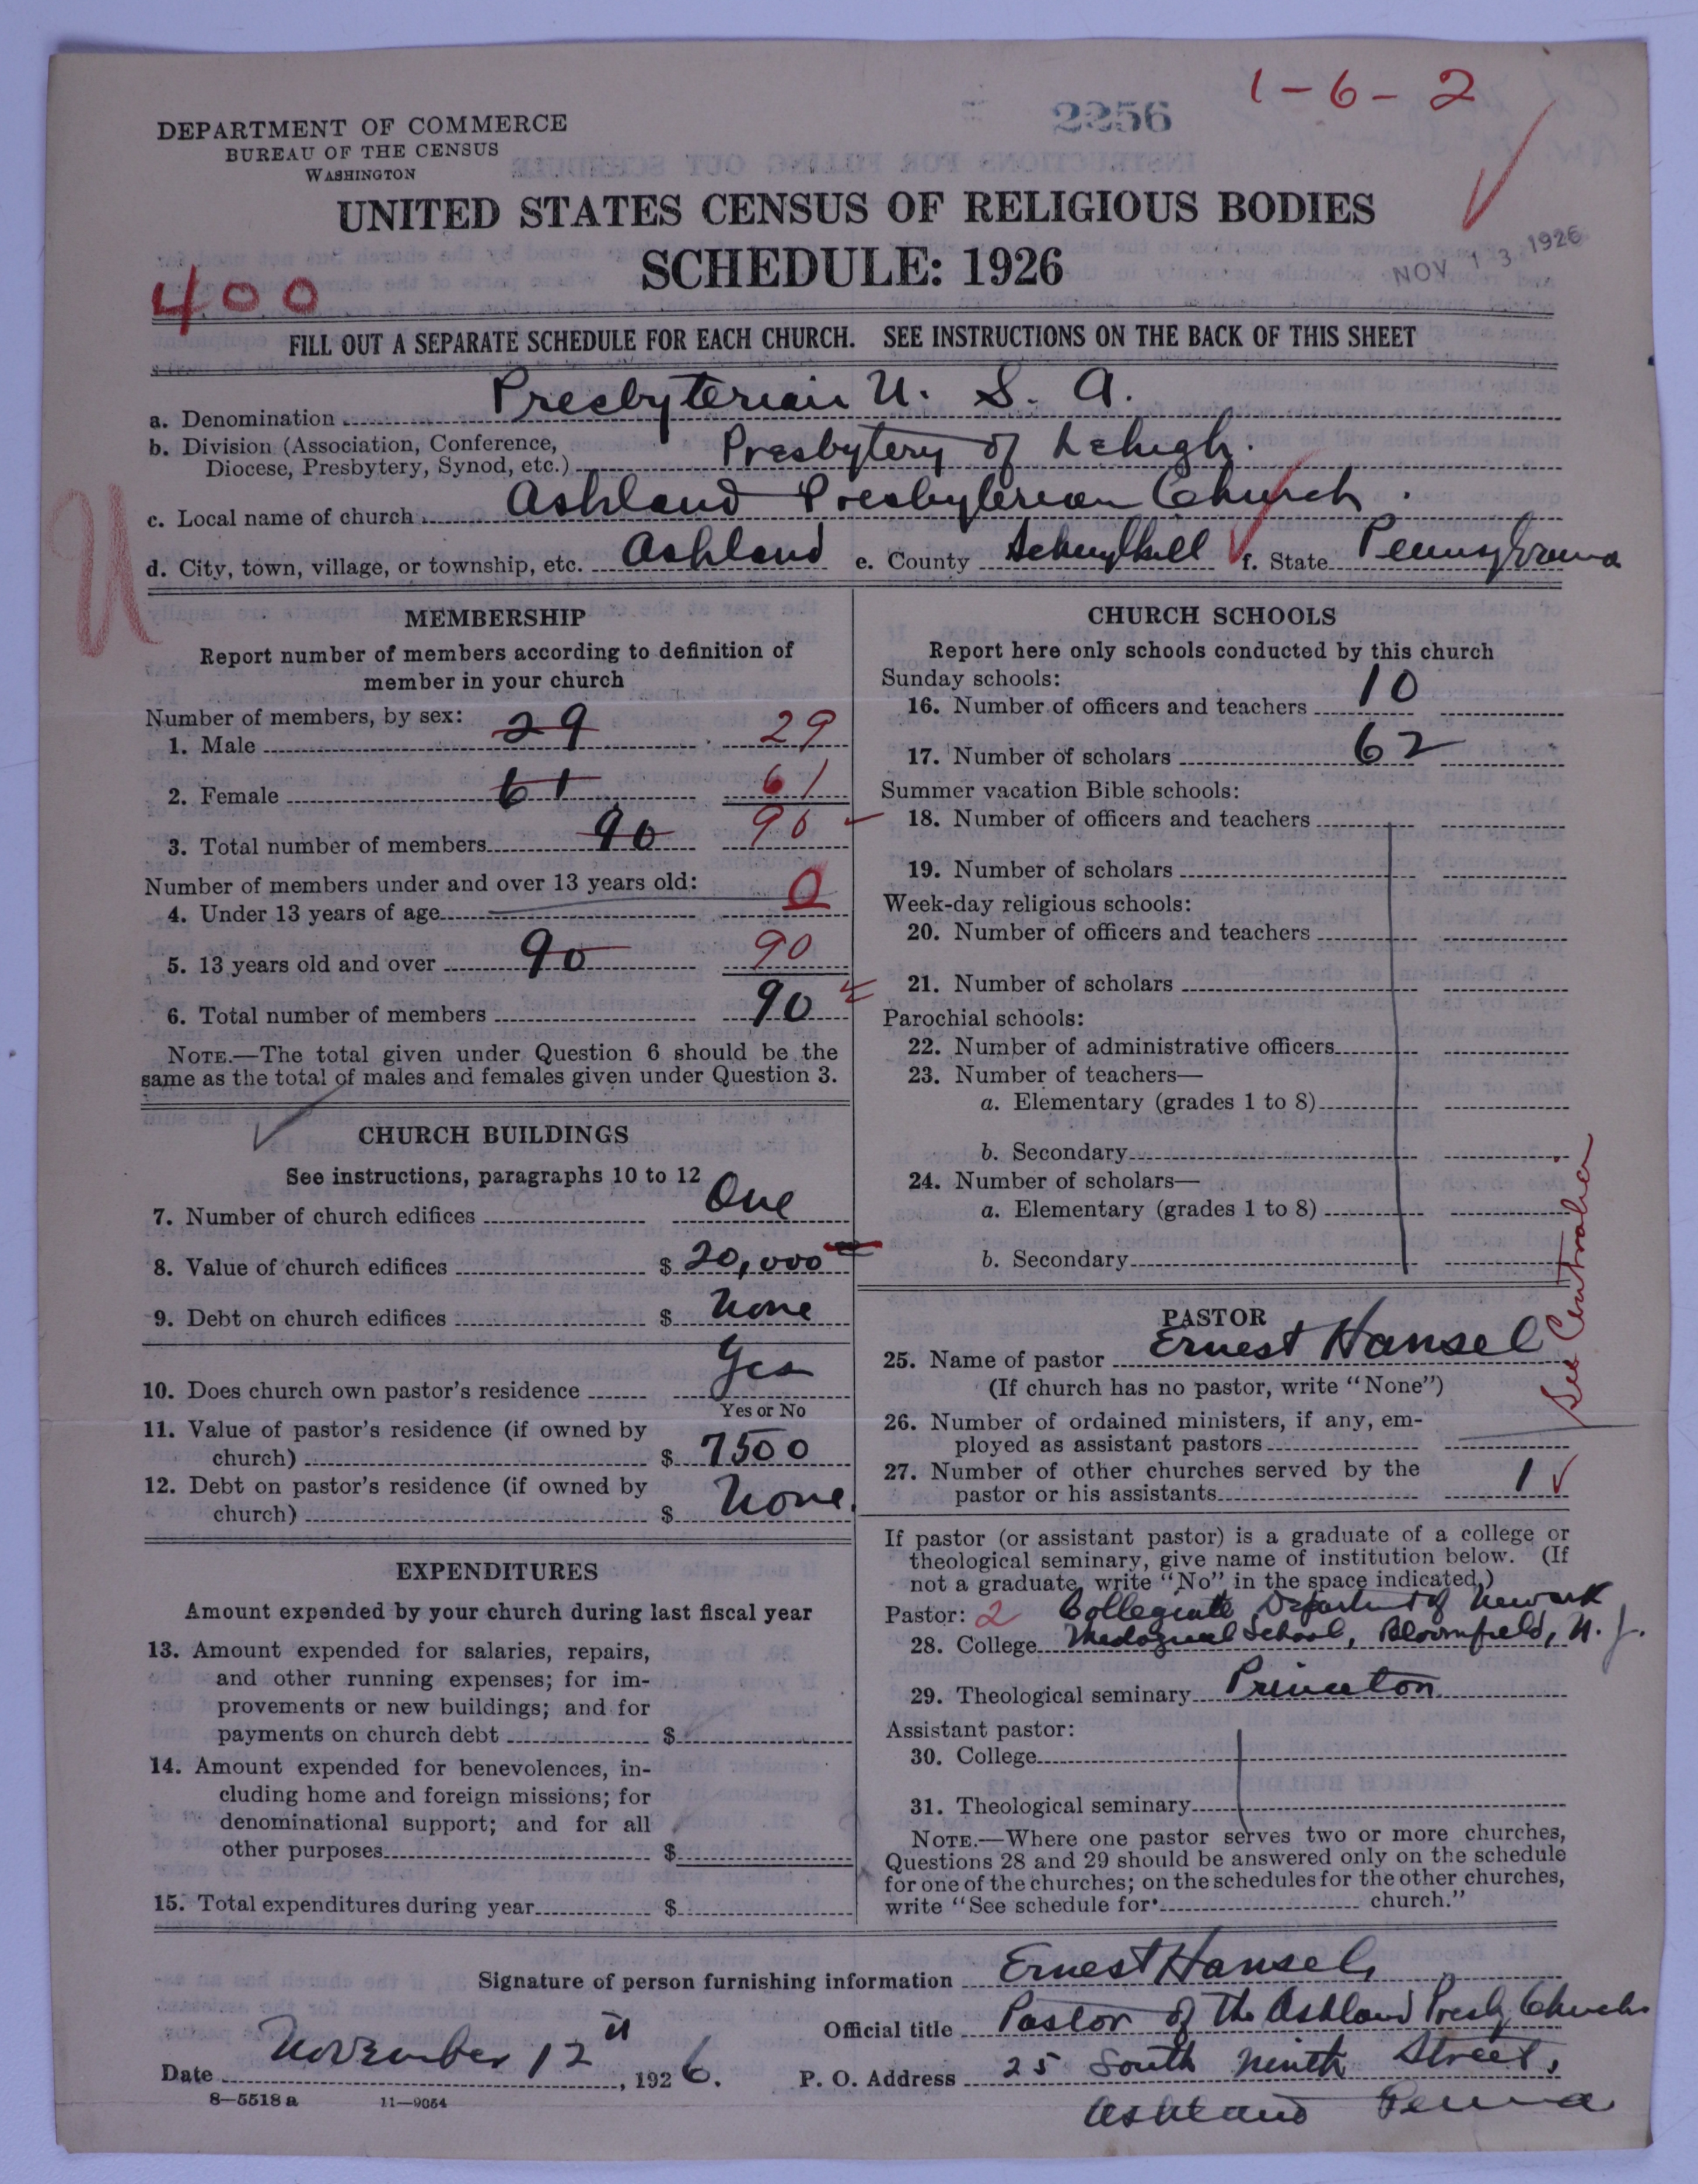 1-6-2
2256
DEPARTMENT OF COMMERCE
BUREAU OF THE CENSUS
WASHINGTON
UNITED STATES CENSUS OF RELIGIOUS BODIES
SCHEDULE: 1926
NOV 13 1926
400
FILL OUT A SEPARATE SCHEDULE FOR EACH CHURCH. SEE INSTRUCTIONS ON THE BACK OF THIS SHEET
a. Denomination Presbyterian U. S. A.
b. Division (Association, Conference,
Diocese, Presbytery, Synod, etc.) Presbytery of Lehigh.
c. Local name of church Ashland Presbyterian Church.
d. City, town, village, or township, etc. Ashland e. County Schuylkill f. State Pennsylvania
U
MEMBERSHIP
Report number of members according to definition of
member in your church
Number of members, by sex:
1. Male 29 29
2. Female 61 61
3. Total number of members 90 90
Number of members under and over 13 years old:
4. Under 13 years of age 0
5. 13 years old and over 90 90
6. Total number of members 90
NOTE.—The total given under Question 6 should be the
same as the total of males and females given under Question 3.
CHURCH BUILDINGS
See instructions, paragraphs 10 to 12
7. Number of church edifices One
8. Value of church edifices $ 20,000
9. Debt on church edifices $ None
10. Does church own pastor's residence Yes
Yes or No
11. Value of pastor's residence (if owned by
church) $ 7500
12. Debt on pastor's residence (if owned by
church) $ None.
EXPENDITURES
Amount expended by your church during last fiscal year
13. Amount expended for salaries, repairs,
and other running expenses; for im-
provements or new buildings; and for
payments on church debt $
14. Amount expended for benevolences, in-
cluding home and foreign missions; for
denominational support; and for all
other purposes $
15. Total expenditures during year $
CHURCH SCHOOLS
Report here only schools conducted by this church
Sunday schools:
16. Number of officers and teachers 10
17. Number of scholars 62
Summer vacation Bible schools:
18. Number of officers and teachers
19. Number of scholars
Week-day religious schools:
20. Number of officers and teachers
21. Number of scholars
Parochial schools:
22. Number of administrative officers
23. Number of teachers—
a. Elementary (grades 1 to 8)
b. Secondary
24. Number of scholars—
a. Elementary (grades 1 to 8)
b. Secondary
See Centralia
PASTOR
25. Name of pastor Ernest Hansel
(If church has no pastor, write "None")
26. Number of ordained ministers, if any, em-
ployed as assistant pastors
27. Number of other churches served by the
pastor or his assistants 1
If pastor (or assistant pastor) is a graduate of a college or
theological seminary, give name of institution below. (If
not a graduate, write "No" in the space indicated.)
Pastor: 2 Collegiate Department of Newark
28. College Theological School, Bloomfield, N. J.
29. Theological seminary Princeton
Assistant pastor:
30. College
31. Theological seminary
NOTE.—Where one pastor serves two or more churches,
Questions 28 and 29 should be answered only on the schedule
for one of the churches; on the schedules for the other churches,
write "See schedule for church."
Signature of person furnishing information Ernest Hansel
Official title Pastor of the Ashland Presby Church
Date November 12th, 1926. P. O. Address 25 South Ninth Street,
Ashland Penna
8—5518 a 11—9054